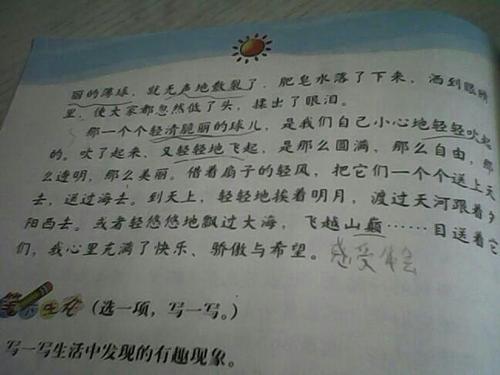 丽的薄球，就无声地散裂了，肥皂水落了下来，洒到眼睛
里，使大家都忽然低了头，揉出了眼泪。
那一个个轻清脆丽的球儿，是我们自己小心地轻轻吹起
的。吹了起来，又轻轻地飞起，是那么圆满，那么自由，那
么透明，那么美丽。借着扇子的轻风，把它们一个个送上天
去，送过海去。到天上，轻轻地挨着明月，渡过天河跟着夕
阳西去。或者轻悠悠地飘过大海，飞越山巅……目送着它
们，我心里充满了快乐、骄傲与希望。感受体会
（选一项，写一写。）
写一写生活中发现的有趣现象。